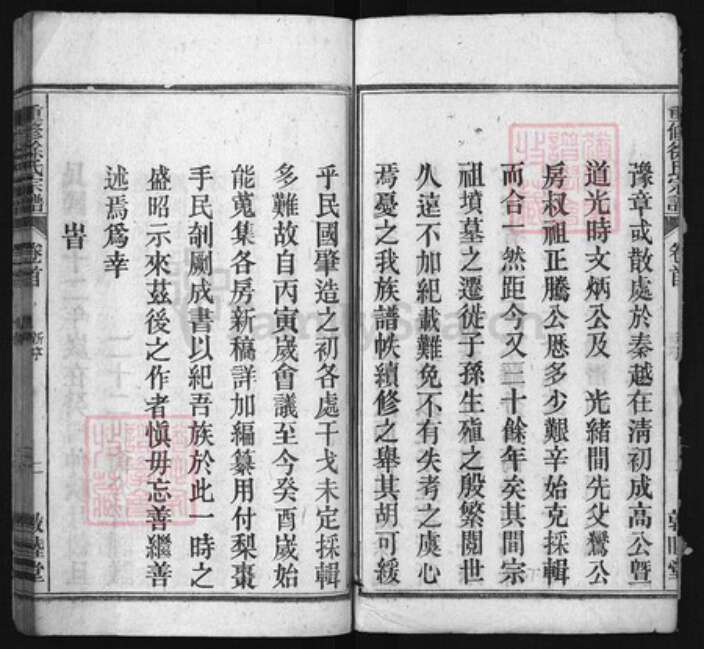 重修徐氏宗譜 卷首 敦睦堂
豫章或散處於秦越在清初成高公暨
道光時文炳公及 光緒間先父鶯公
房叔祖正騰公歷多少艱辛始克採輯
而合一然距今又三十餘年矣其間宗
祖墳墓之遷徙子孫生殖之殷繁閱世
久遠不加紀載難免不有失考之虞心
焉憂之我族譜帙續修之舉其胡可緩
乎民國肇造之初各處干戈未定採輯
多難故自丙寅歲會議至今癸酉歲始
能蒐集各房新稿詳加編纂用付梨棗
手民剞劂成書以紀吾族於此一時之
盛昭示來茲後之作者慎毋忘善繼善
述焉為幸
旹
重修徐氏宗譜 卷首 新序 二 敦睦堂
FamilySearch